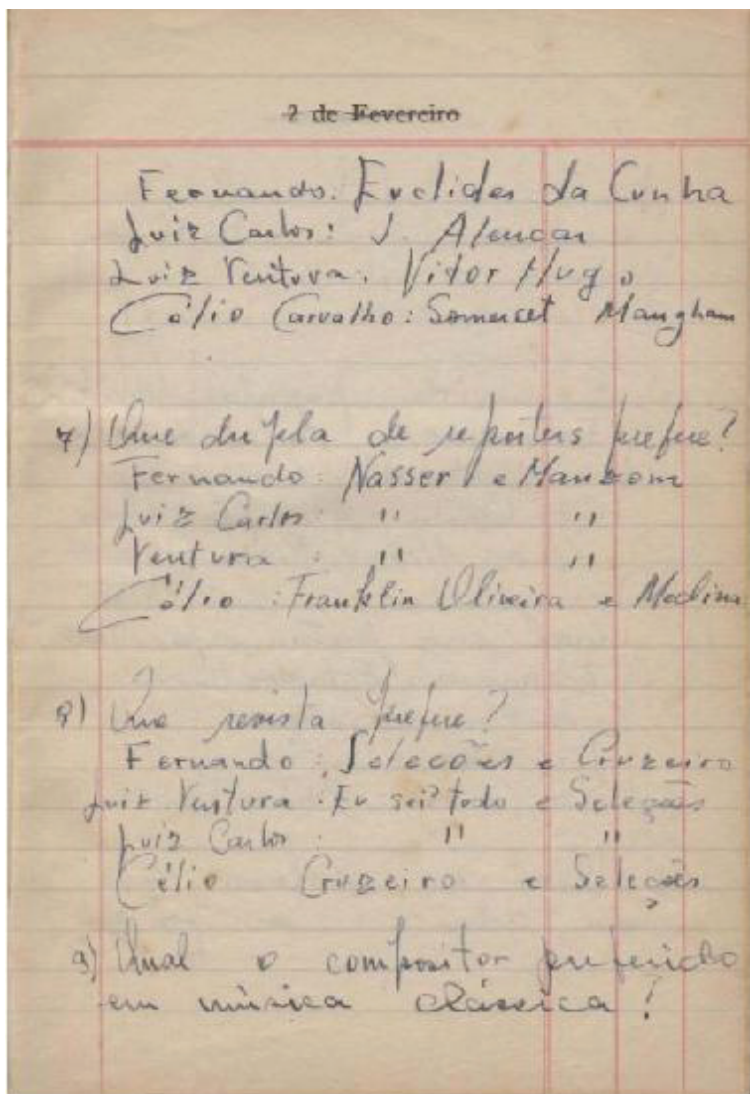 2 de Fevereiro
Fernando: Euclides da Cunha
Luiz Carlos: J. Alencar
Luiz Ventura: Vitor Hugo
Célio Carvalho: Somerset Mangham
7) Que dupla de reporters prefere?
Fernando: Nasser e Manzom
Luiz Carlos: " "
Ventura : " "
Célio : Franklin Oliveira e Medina
8) Que revista prefere?
Fernando : Selecões e Cruzeiro
Luiz Ventura : Eu sei tudo e Seleções
Luiz Carlos : " "
Célio Cruzeiro e Seleções
9) Qual o compositor preferido
em música clássica?